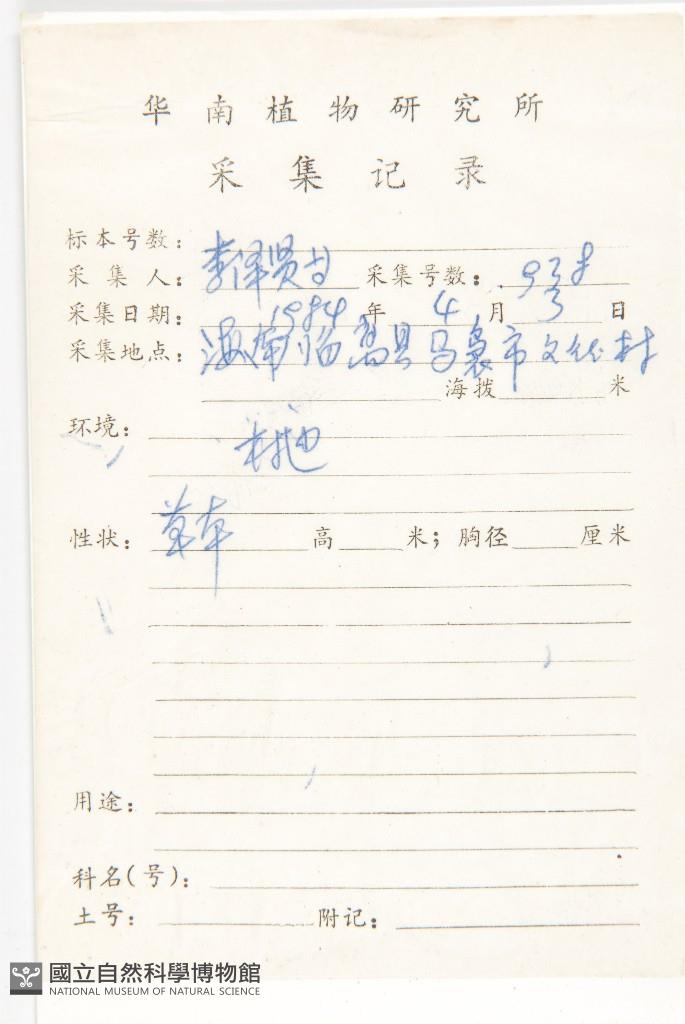 华南植物研究所
采集记录
标本号数:
采集人: 李泽贤 采集号数:
采集日期: 1984 年 4 月 3 日
采集地点: 海南临高县马袅市文 村
海拨 米
环境:
性状: 草本 高 米; 胸径 厘米
用途:
科名(号):
土号: 附记:
國立自然科學博物館
NATIONAL MUSEUM OF NATURAL SCIENCE